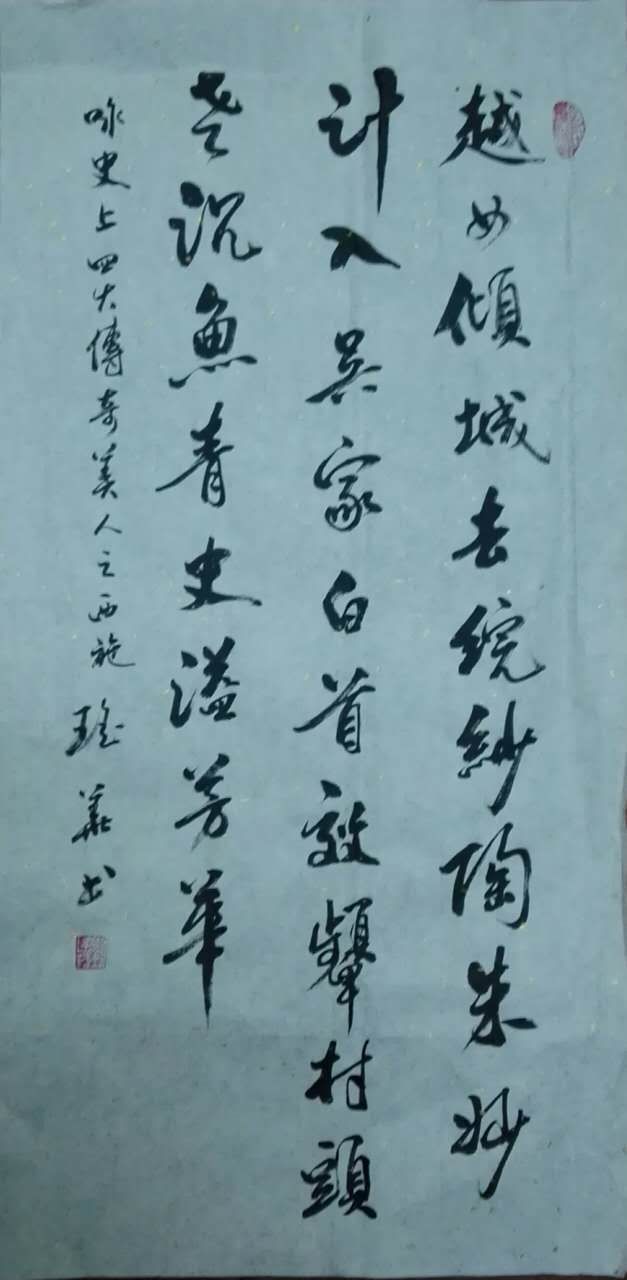 越女傾城去浣紗陶朱妙
計入吳家白首效顰村頭
老沉魚青史溢芳華
咏史上四大傳奇美人之西施 瑤華书